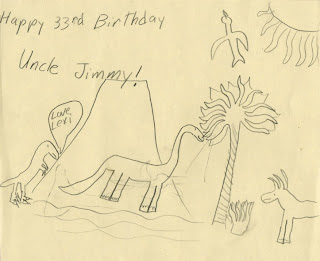 Happy 33rd Birthday
Uncle Jimmy!
Love,
Levi